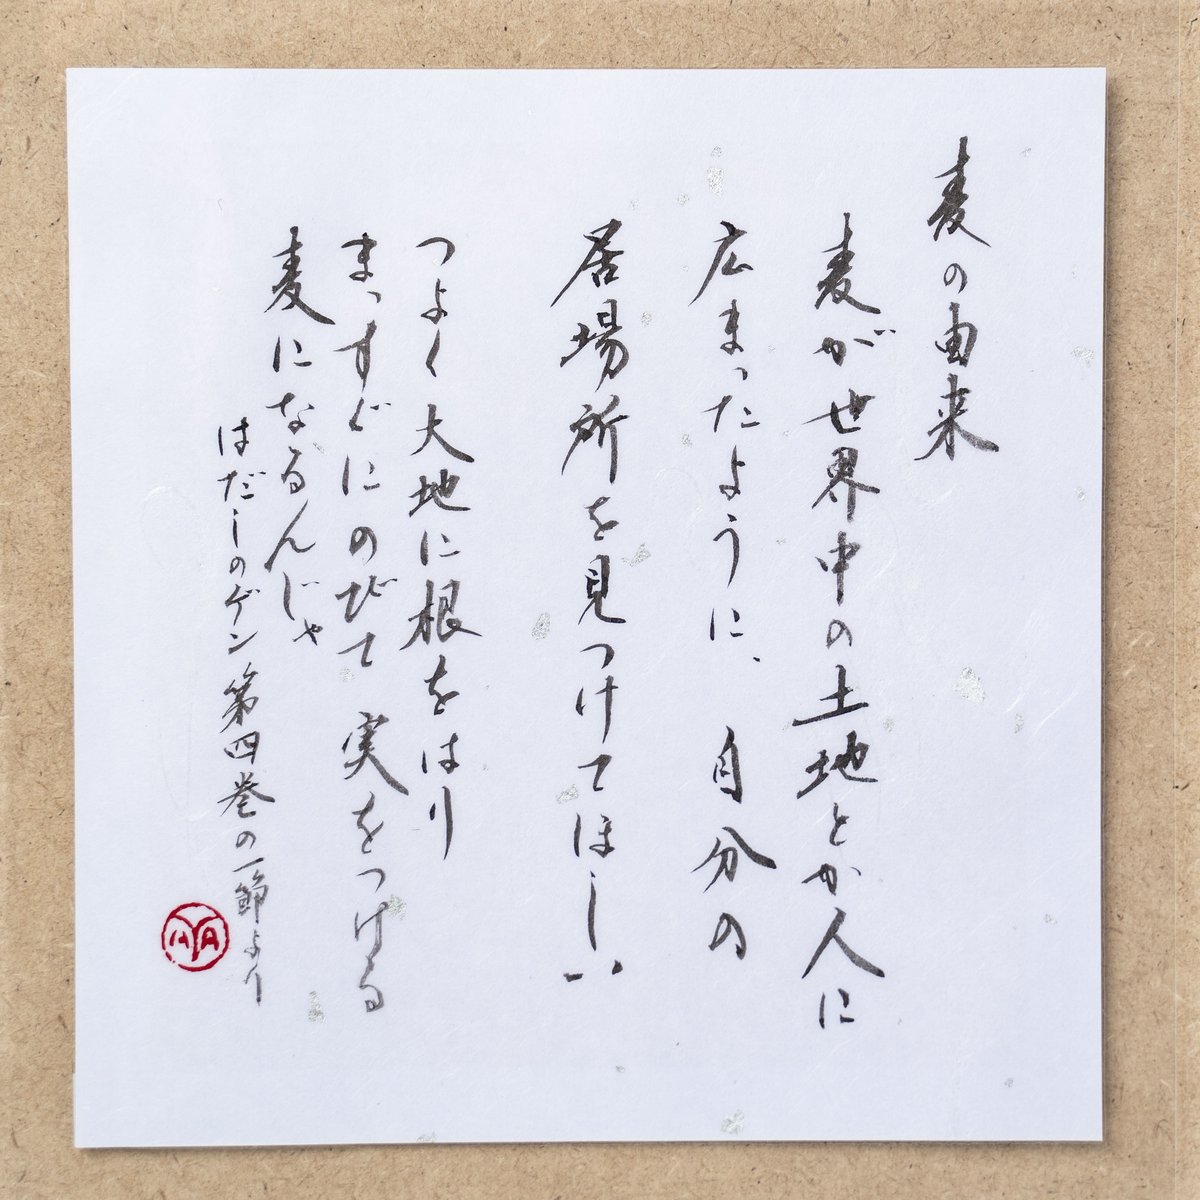 麦の由来
麦が世界中の土地とか人に
広まったように、自分の
居場所を見つけてほしい
つよく大地に根をはり
まっすぐにのびて 実をつける
麦になるんじゃ
はだしのゲン 第四巻の一節より